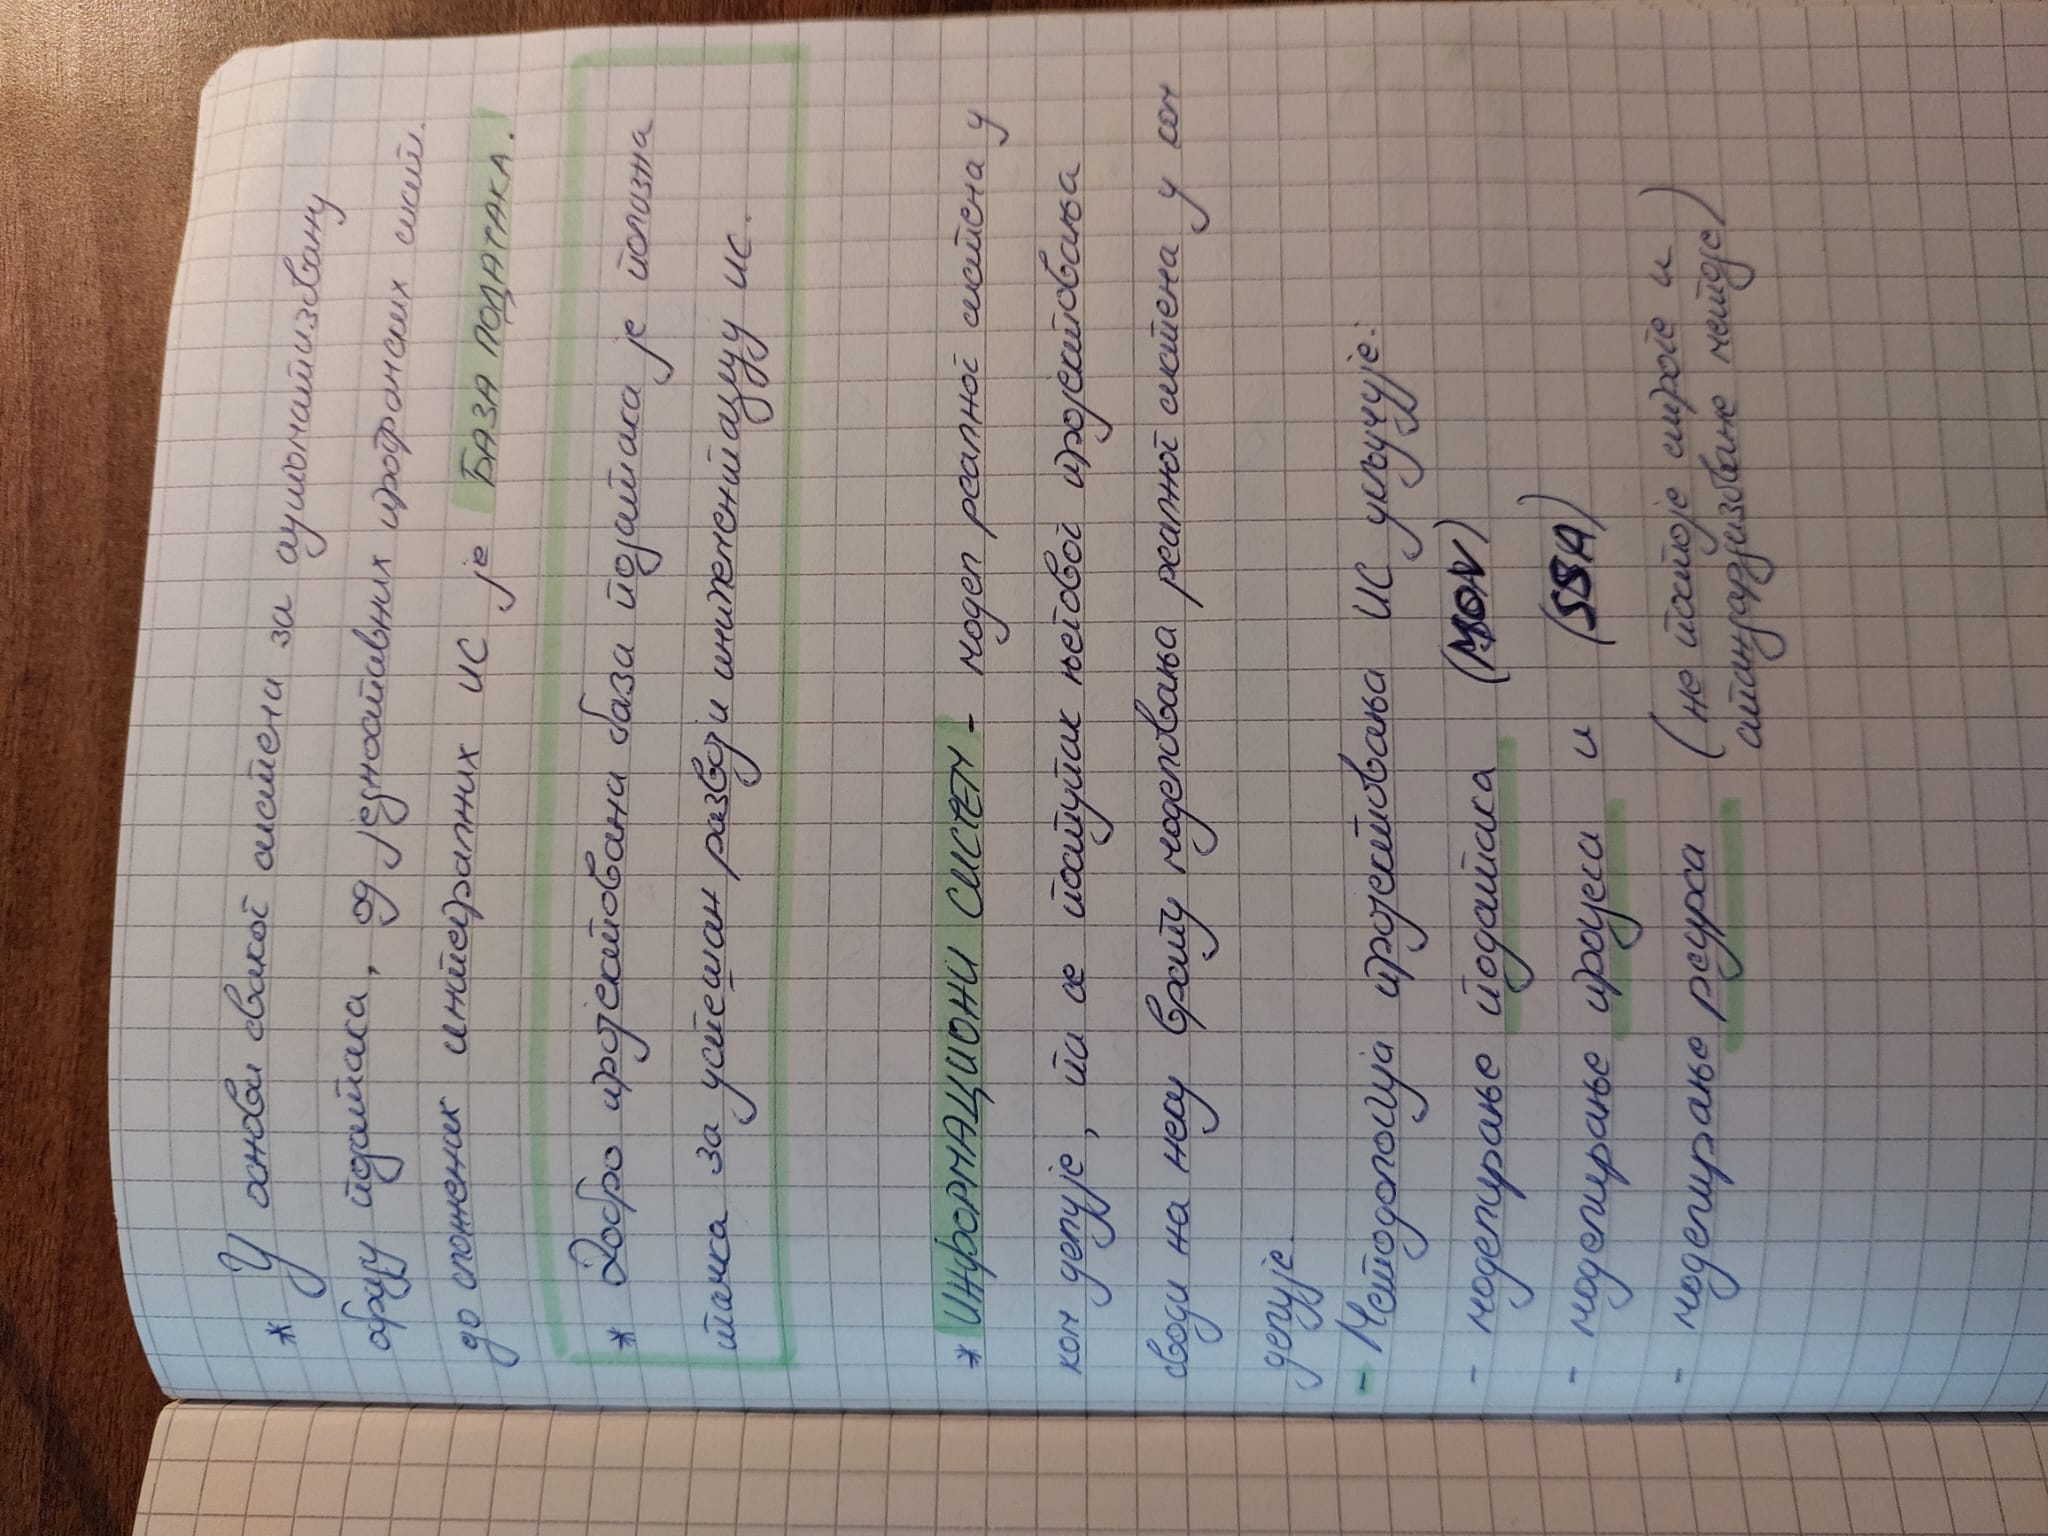 * У основи сваког система за аутоматизовану
обраду података, од једноставних програмских сист.
до сложених интегралних ИС је БАЗА ПОДАТАКА.
* Добро пројектована база података је полазна
тачка за успешан развој и имплементацију ИС.
* ИНФОРМАЦИОНИ СИСТЕМ - модел реалног система у
ком делује, па се поступак његовог пројектовања
своди на неку врсту моделовања реалног система у ком
делује.
- Методологија пројектовања ИС укључује:
- моделирање података
- моделирање процеса и (SSA)
- моделирање ресурса (не постоје строге и
стандардизоване методе)